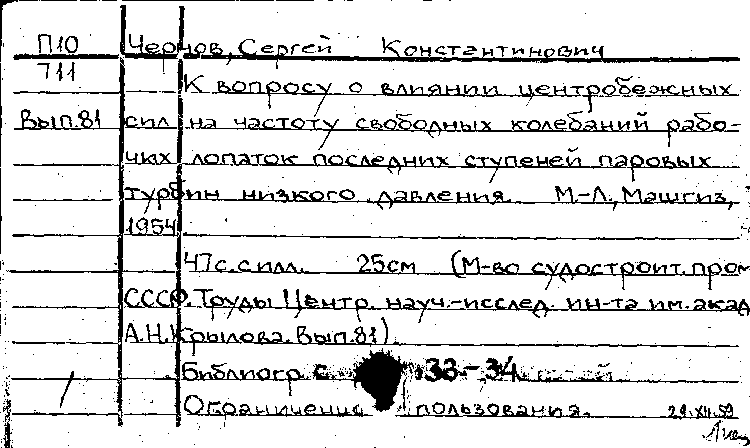 П10 Чернов, Сергей Константинович
711 К вопросу о влиянии центробежных
Вып.81 сил на частоту свободных колебаний рабо-
чих лопаток последних ступеней паровых
турбин низкого давления. М-Л., Машгиз,
1954.
47с. с илл. 25см (М-во судостроит. пром
СССР. Труды Центр. науч.-исслед. ин-та им. акад
А.Н.Крылова. Вып.81).
Библиогр. с 33-34
Ограничение пользования. 29.XII.59